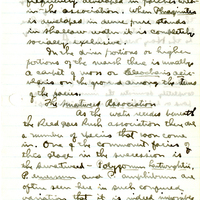 frequently developed in patches within
in the association. When Phragmites
is developed in dense pure stands
in shallow water it is completely
socially exclusive.
In the drier portions or higher
portions of the marsh there is usually
a carpet of moss or
on the ground among the stems
of the grasses.
The Smartweed Association
As the water recedes beneath
the Reed grass Rush association there are
a number of species that soon come
in. One of the commonest facies of
this stage in the succession is
the Smartweed - Polygonum
P. and P. amphibium are
often seen here in such confused
variation that it is indeed impossible